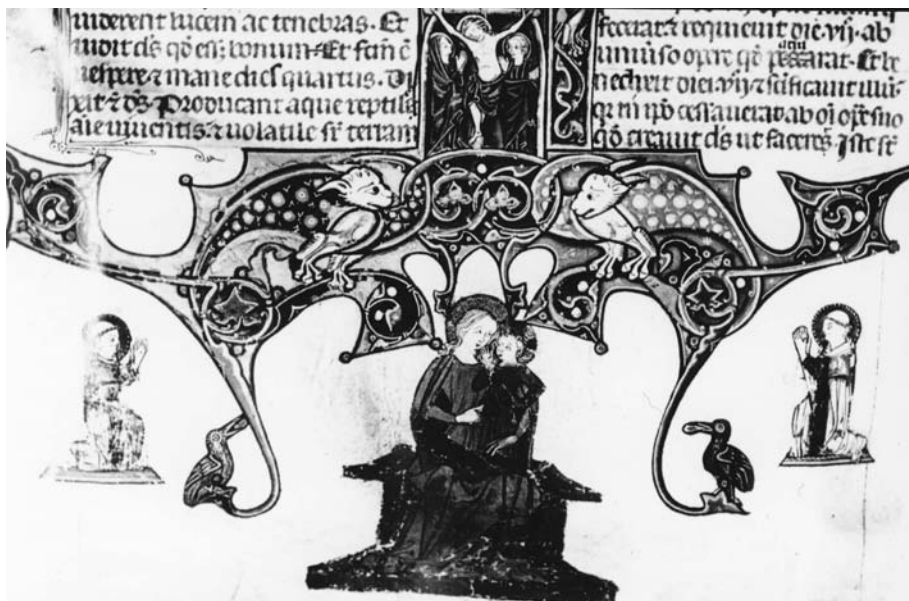 uiderent lucem ac tenebras. Et
uidit ds̄ qđ eēt bonum. Et fc̄m ē
uespere ⁊ mane dies quartus. Di
xit ⁊ ds̄. Producant aque reptile
aīe uiuentis ⁊ uolatile sr̄ terram
fecerat ⁊ requieuit die .vij. ab
uniuso opere qđ patrarat. Et be
nedixit diei .vij. ⁊ sc̄ificauit illū.
qr in ip̄o cessauerat ab oī ope suo
qđ creauit ds̄ ut faceret. Iste st̄